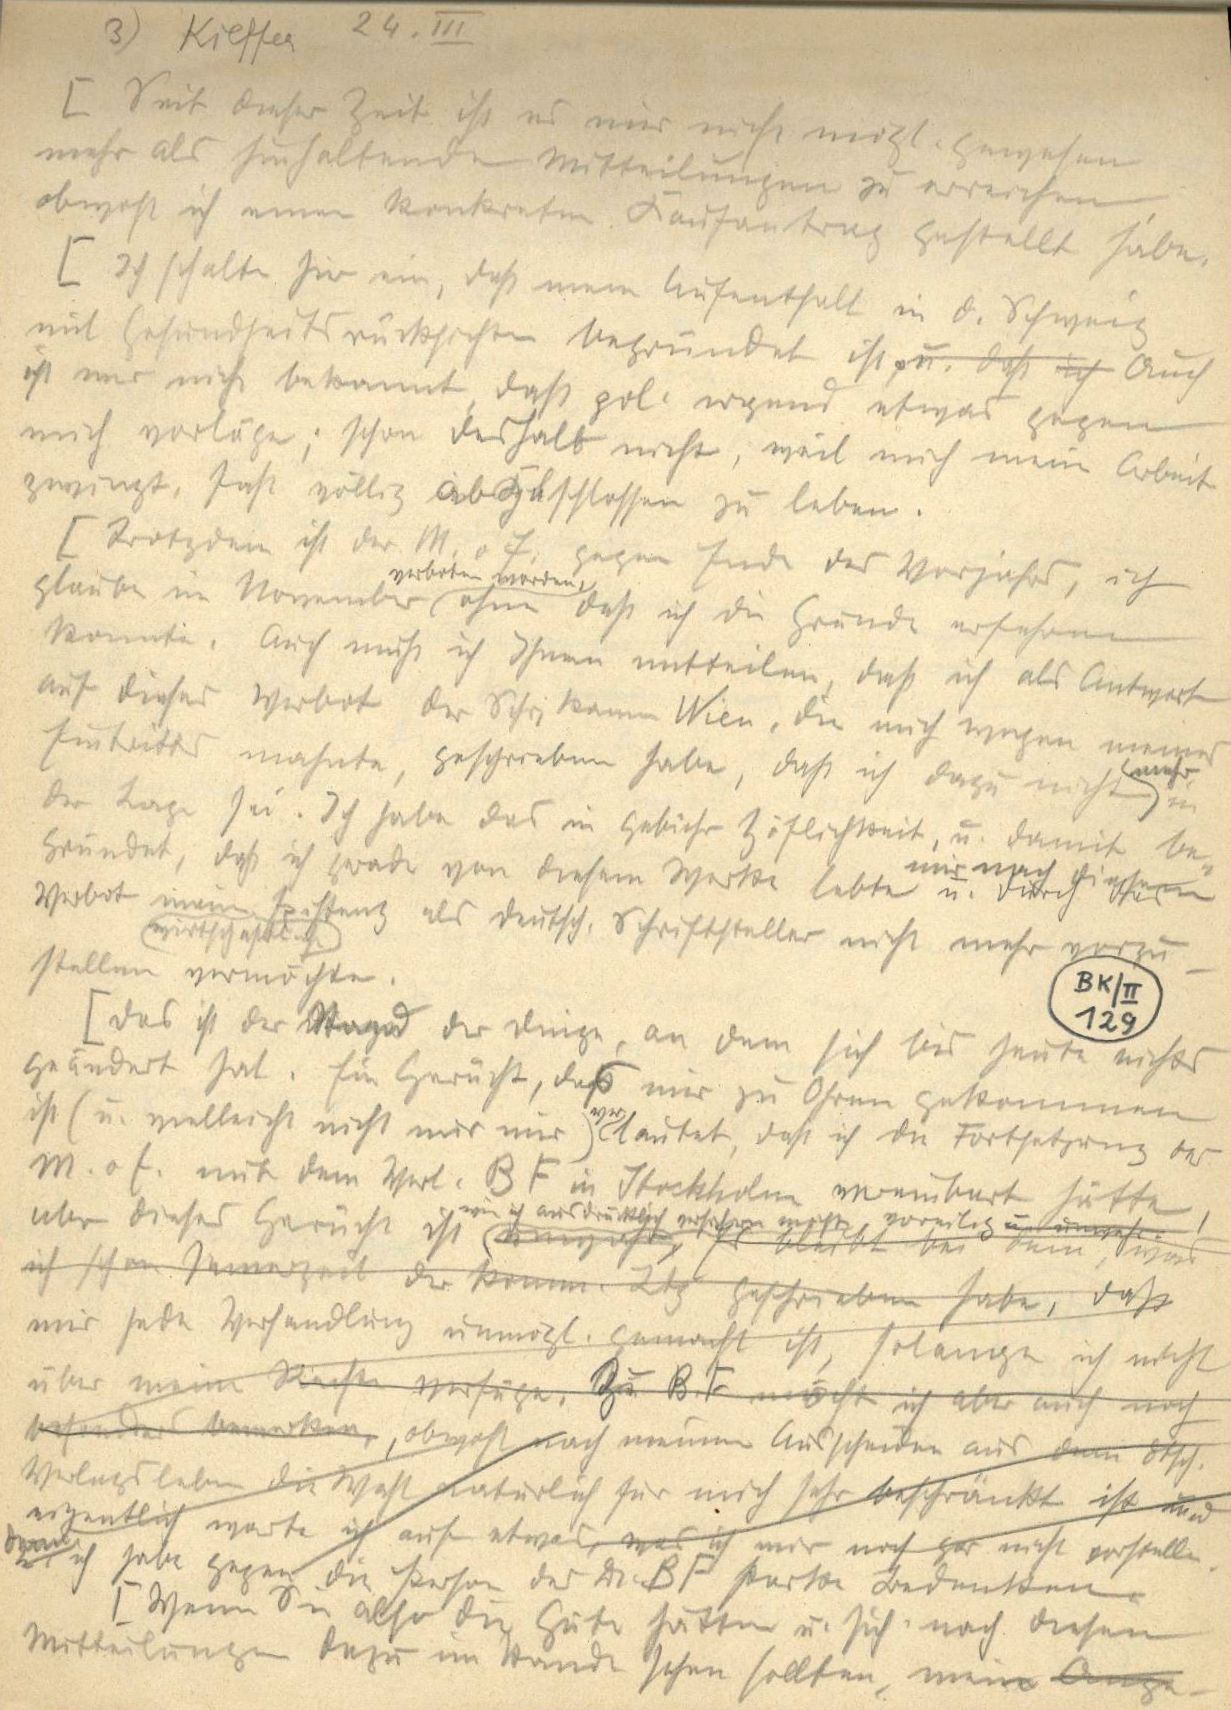 3) Kieffer 24. III
[ Seit dieser Zeit ist es mir nicht mögl. gewesen
mehr als hinhaltende Mitteilungen zu erreichen,
obwohl ich einen konkreten Kaufantrag gestellt habe.
[ Ich schalte hier ein, daß mein Aufenthalt in d. Schweiz
mit Gesundheitsrücksichten begründet ist, u. daß ich Auch
ist mir nicht bekannt, daß pol. irgend etwas gegen
mich vorläge; schon deshalb nicht, weil mich meine Arbeit
zwingt, fast völlig abgeschlossen zu leben.
[ Trotzdem ist der M. o E. gegen Ende des Vorjahrs, ich
verboten worden,
glaube im November ohne daß ich die Gründe erfahren
konnte. Auch muß ich Ihnen mitteilen, daß ich als Antwort
auf dieses Verbot der Schr. kamm Wien, die mich wegen meines
Eintritts mahnte, geschrieben habe, daß ich dazu nicht mehr in
der Lage sei. Ich habe das in gebühr Höflichkeit, u. damit be-
gründet, daß ich gerade von diesem Werke lebte u. durch das
mir nach diesem
Verbot meine Existenz als deutsch. Schriftsteller nicht mehr vorzu-
wirtschaftlich
stellen vermöchte.
BK/II
129
[ Das ist der Stand der Dinge, an dem sich bis heute nichts
geändert hat. Ein Gerücht, daß mir zu Ohren gekommen
ist (u. vielleicht nicht nur mir) verlautet, daß ich die Fortsetzung des
M. o E. mit dem Verl. BF in Stockholm vereinbart hätte,
wie ich ausdrücklich versichern möchte voreilig u. unwahr.
aber dieses Gerücht ist unwahr, Es bleibt bei dem, was
ich schon seinerzeit der Komm. Ltg geschrieben habe, daß
mir jede Verhandlung unmögl. gemacht ist, solange ich nicht
über meine Rechte verfüge. Zu B.F möcht ich aber auch noch
besonders bemerken, obwohl nach meinem Ausscheiden aus dem dtsch.
Verlagsleben die Wahl natürlich für mich sehr beschränkt ist und
eigentlich warte ich auf etwas, was ich mir noch gar nicht vorstelle.
Denn ich habe gegen die Person des Dr. BF starke Bedenken.
[ Wenn Sie also die Güte hätten u. sich nach diesen
Mitteilungen dazu im Stande sehen sollten, meine Ange-